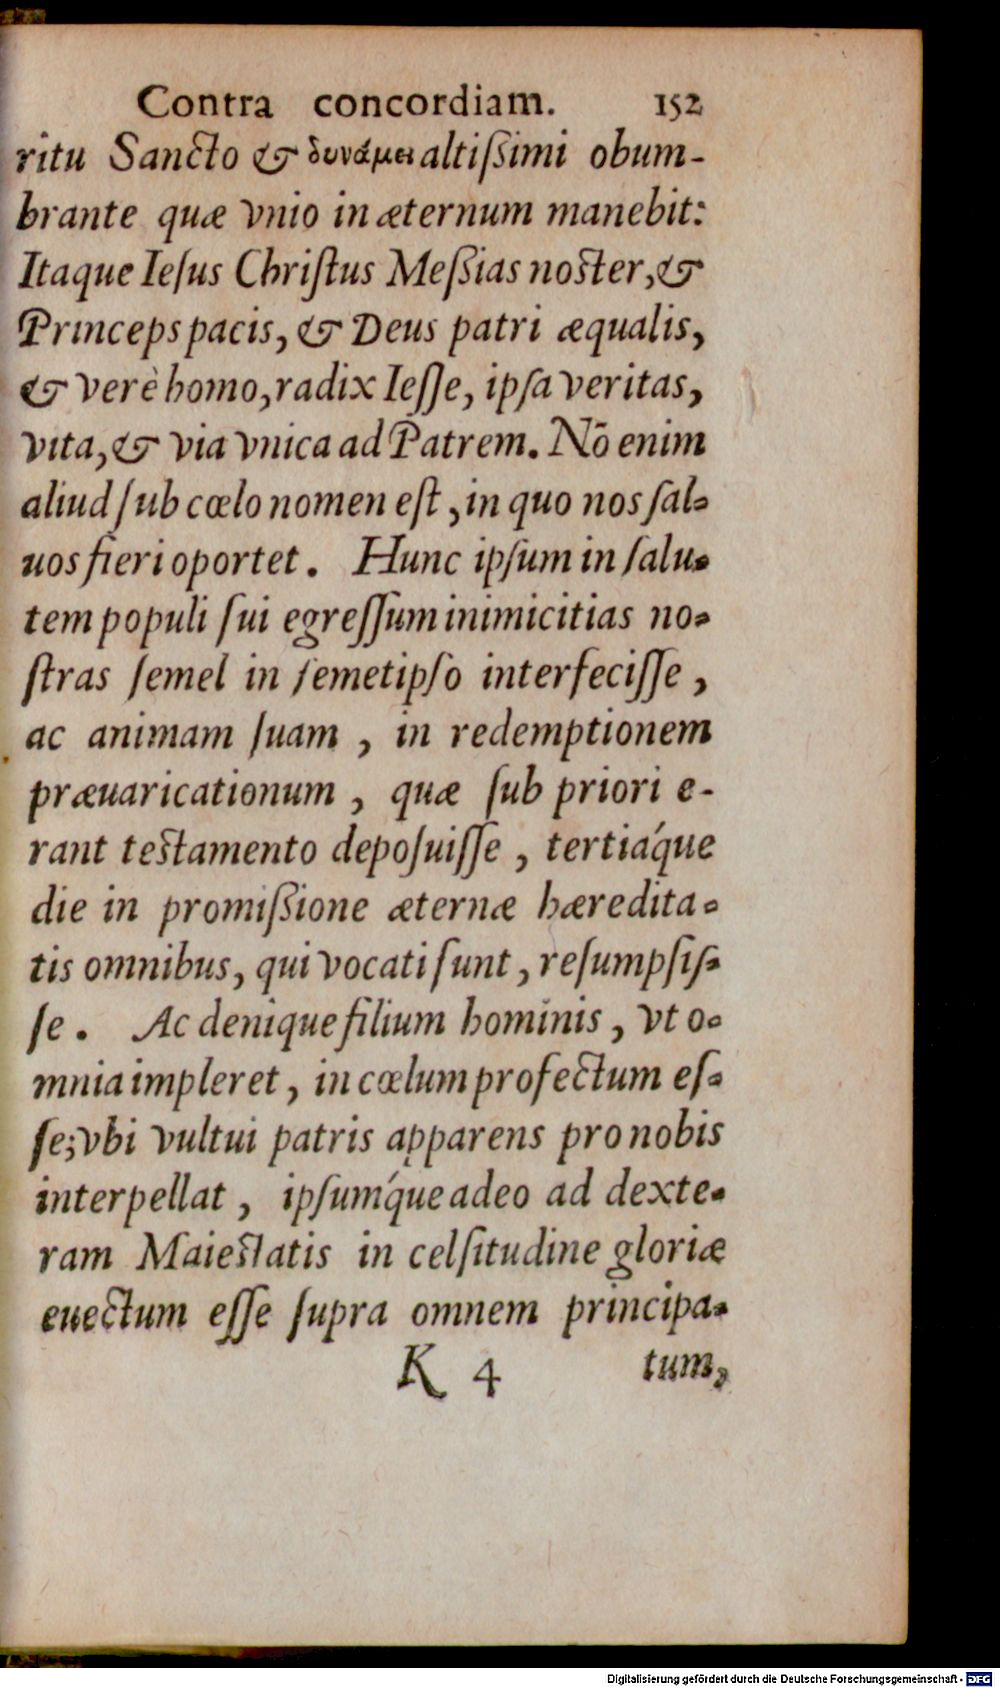 Contra concordiam. 152
ritu Sancto & δυνάμει altißimi obum-
brante quæ vnio in æternum manebit:
Itaque Ieſus Chriſtus Meßias noſter, &
Princeps pacis, & Deus patri æqualis,
& verè homo, radix Ieſſe, ipſa veritas,
vita, & via vnica ad Patrem. Nō enim
aliud ſub cœlo nomen eſt, in quo nos ſal-
uos fieri oportet. Hunc ipſum in ſalu-
tem populi ſui egreſſum inimicitias no-
ſtras ſemel in ſemetipſo interfeciſſe,
ac animam ſuam, in redemptionem
præuaricationum, quæ ſub priori e-
rant teſtamento depoſuiſſe, tertiáque
die in promißione æternæ hæredita-
tis omnibus, qui vocati ſunt, reſumpſiſ-
ſe. Ac denique filium hominis, vt o-
mnia impleret, in cœlum profectum eſ-
ſe; vbi vultui patris apparens pro nobis
interpellat, ipſumq́ue adeo ad dexte-
ram Maieſtatis in celſitudine gloriæ
euectum eſſe ſupra omnem principa-
K 4 tum,
Digitalisierung gefördert durch die Deutsche Forschungsgemeinschaft - DFG